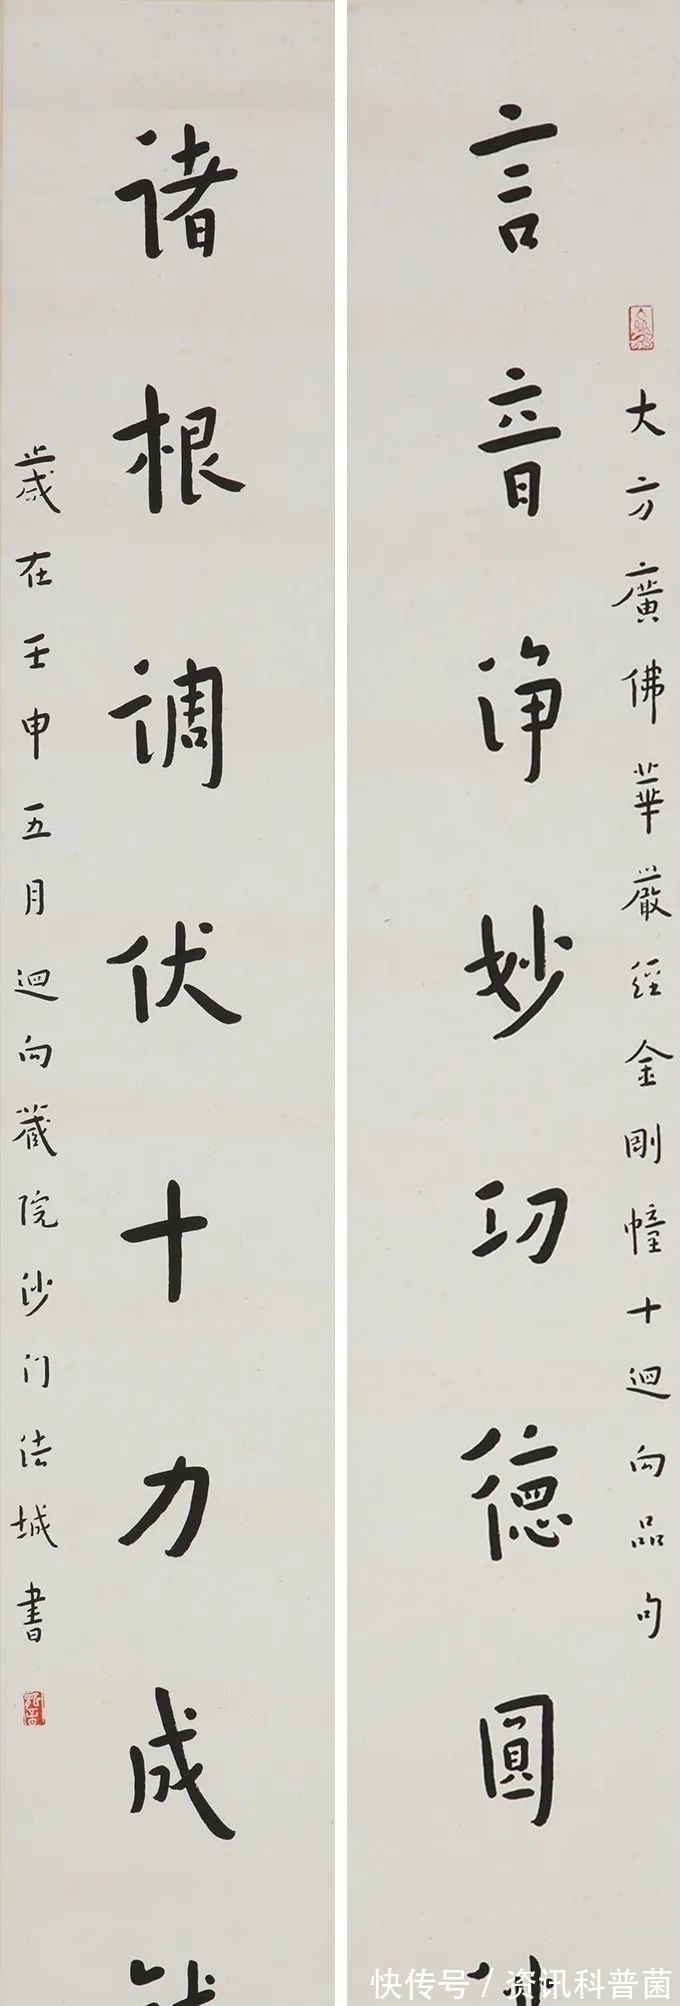 大方廣佛華嚴經金剛幢十迴向品句
言音淨妙功德圓
諸根調伏十力成
歲在壬申五月迴向藏院沙门法城書
快传号/资讯科普菌